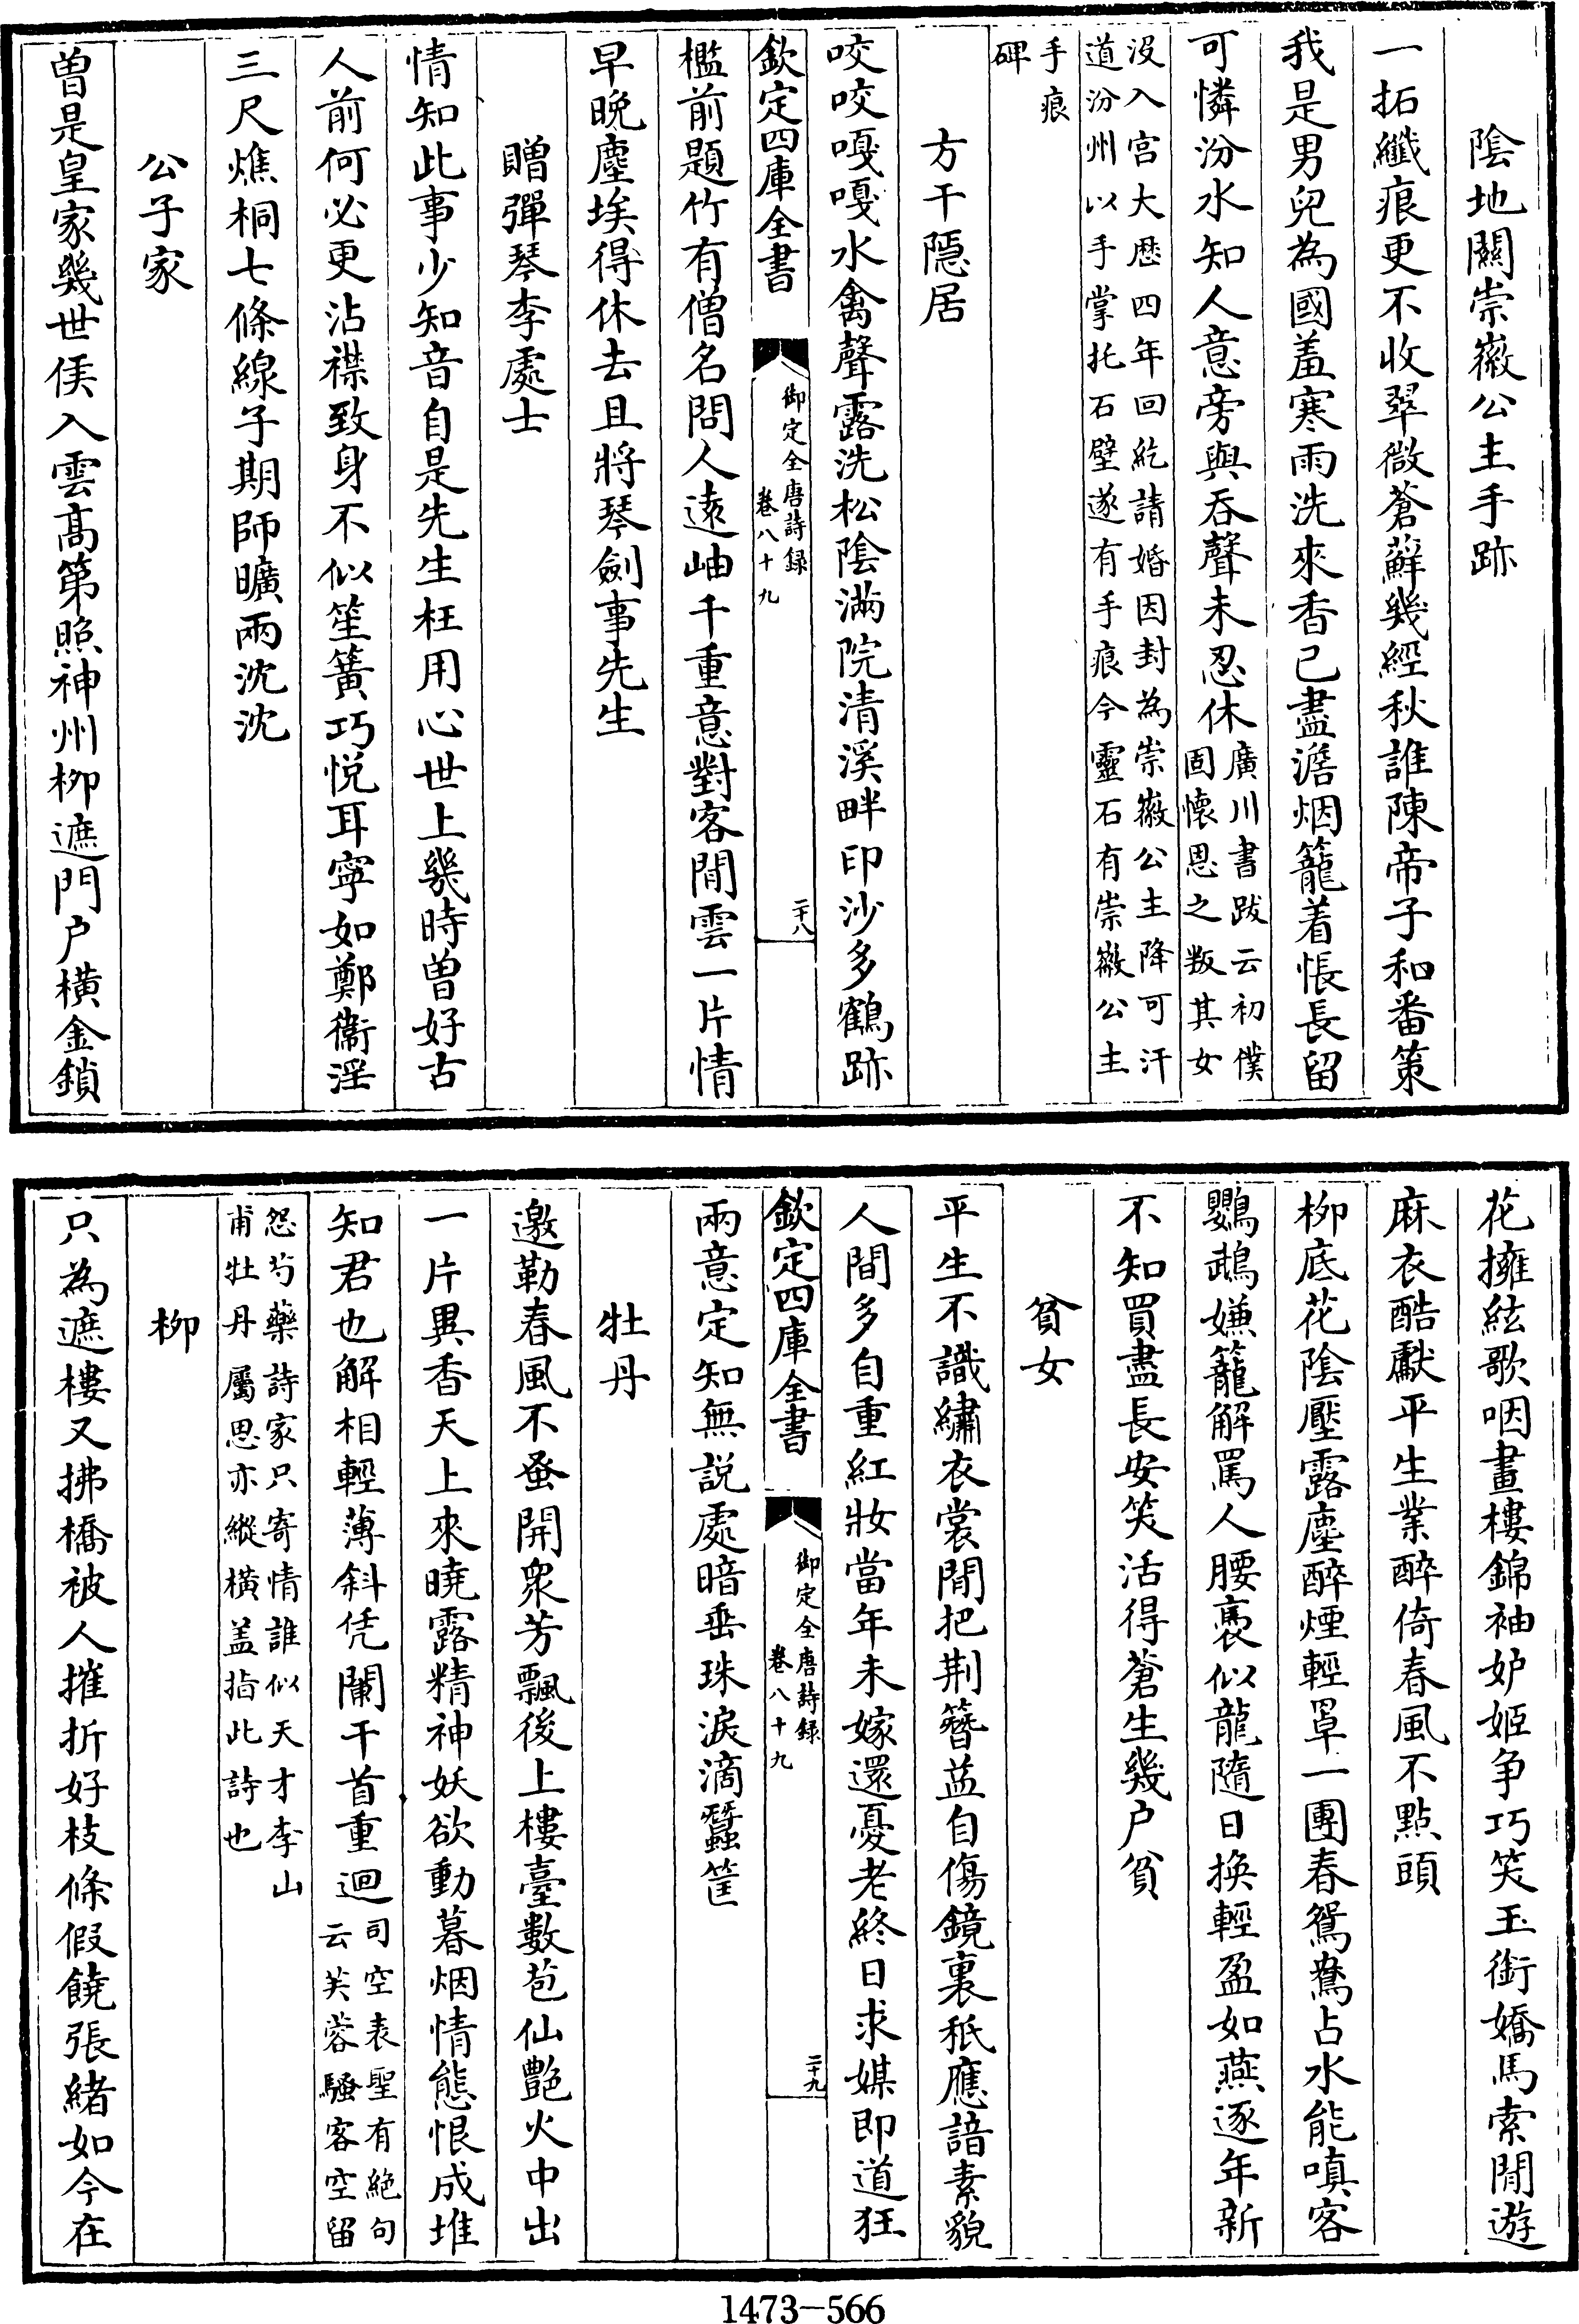 陰地關崇徽公主手跡
一拓纖痕更不收翠微蒼蘚幾經秋誰陳帝子和番策
我是男兒為國羞寒雨洗來香已盡澹烟籠着悵長留
可憐汾水知人意旁與吞聲未忍休廣川書跋云初僕
固懷恩之叛其女
没入宫大厯四年回紇請婚因封為崇徽公主降可汗
道汾州以手掌托石壁遂有手痕今靈石有崇徽公主
手痕
碑
方干隱居
咬咬嘎嘎水禽聲露洗松陰滿院清溪畔印沙多鶴跡
欽定四庫全書
御定全唐詩録
卷八十九
二十八
檻前題竹有僧名問人遠岫千重意對客閒雲一片情
早晚塵埃得休去且將琴劍事先生
贈彈琴李處士
情知此事少知音自是先生枉用心世上幾時曾好古
人前何必更沾襟致身不似笙簧巧悦耳寧如鄭衞淫
三尺燋桐七條線子期師曠兩沈沈
公子家
曽是皇家幾世侯入雲髙第照神州柳遮門户橫金鎖
花擁絃歌咽畫樓錦袖妒姬爭巧笑玉銜嬌馬索閒遊
麻衣酷獻平生業醉倚春風不點頭
柳底花陰壓露塵醉煙輕罩一團春鴛鴦占水能嗔客
鸚鵡嫌籠解罵人腰褭似龍隨日换輕盈如燕逐年新
不知買盡長安笑活得蒼生幾户貧
貧女
平生不識繡衣裳閒把荆簪益自傷鏡裏秖應諳素貌
人間多自重紅妝當年未嫁還憂老終日求媒即道狂
欽定四庫全書
御定全唐詩録
卷八十九
二十九
兩意定知無説處暗垂珠淚滴蠶筐
牡丹
邀勒春風不蚤開衆芳飄後上樓臺數苞仙艷火中出
一片異香天上來曉露精神妖欲動暮烟情態恨成堆
知君也解相輕薄斜凭闌干首重迴司空表聖有絶句
云芙蓉騷客空留
怨芍藥詩家只寄情誰似天才李山
甫牡丹屬思亦縱橫盖指此詩也
柳
只為遮樓又拂橋被人摧折好枝條假饒張緒如今在
1473－566